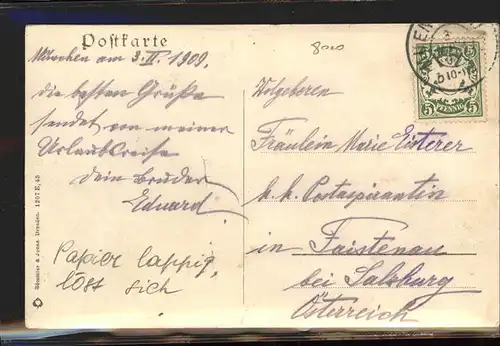 Postkarte
8000
München am 3.II. 1909.
die besten Grüße
sendet von meiner
Urlaubsreise
dein Bruder
Eduard
Papier lappig,
löst sich
Wolgeboren
Fräulein Marie Eisterer
k.k. Postaspirantin
in Faistenau
bei Salzburg
Österreich
5 5
5 PFENNIG 5
Römmler & Jonas, Dresden. 1907 E, 45